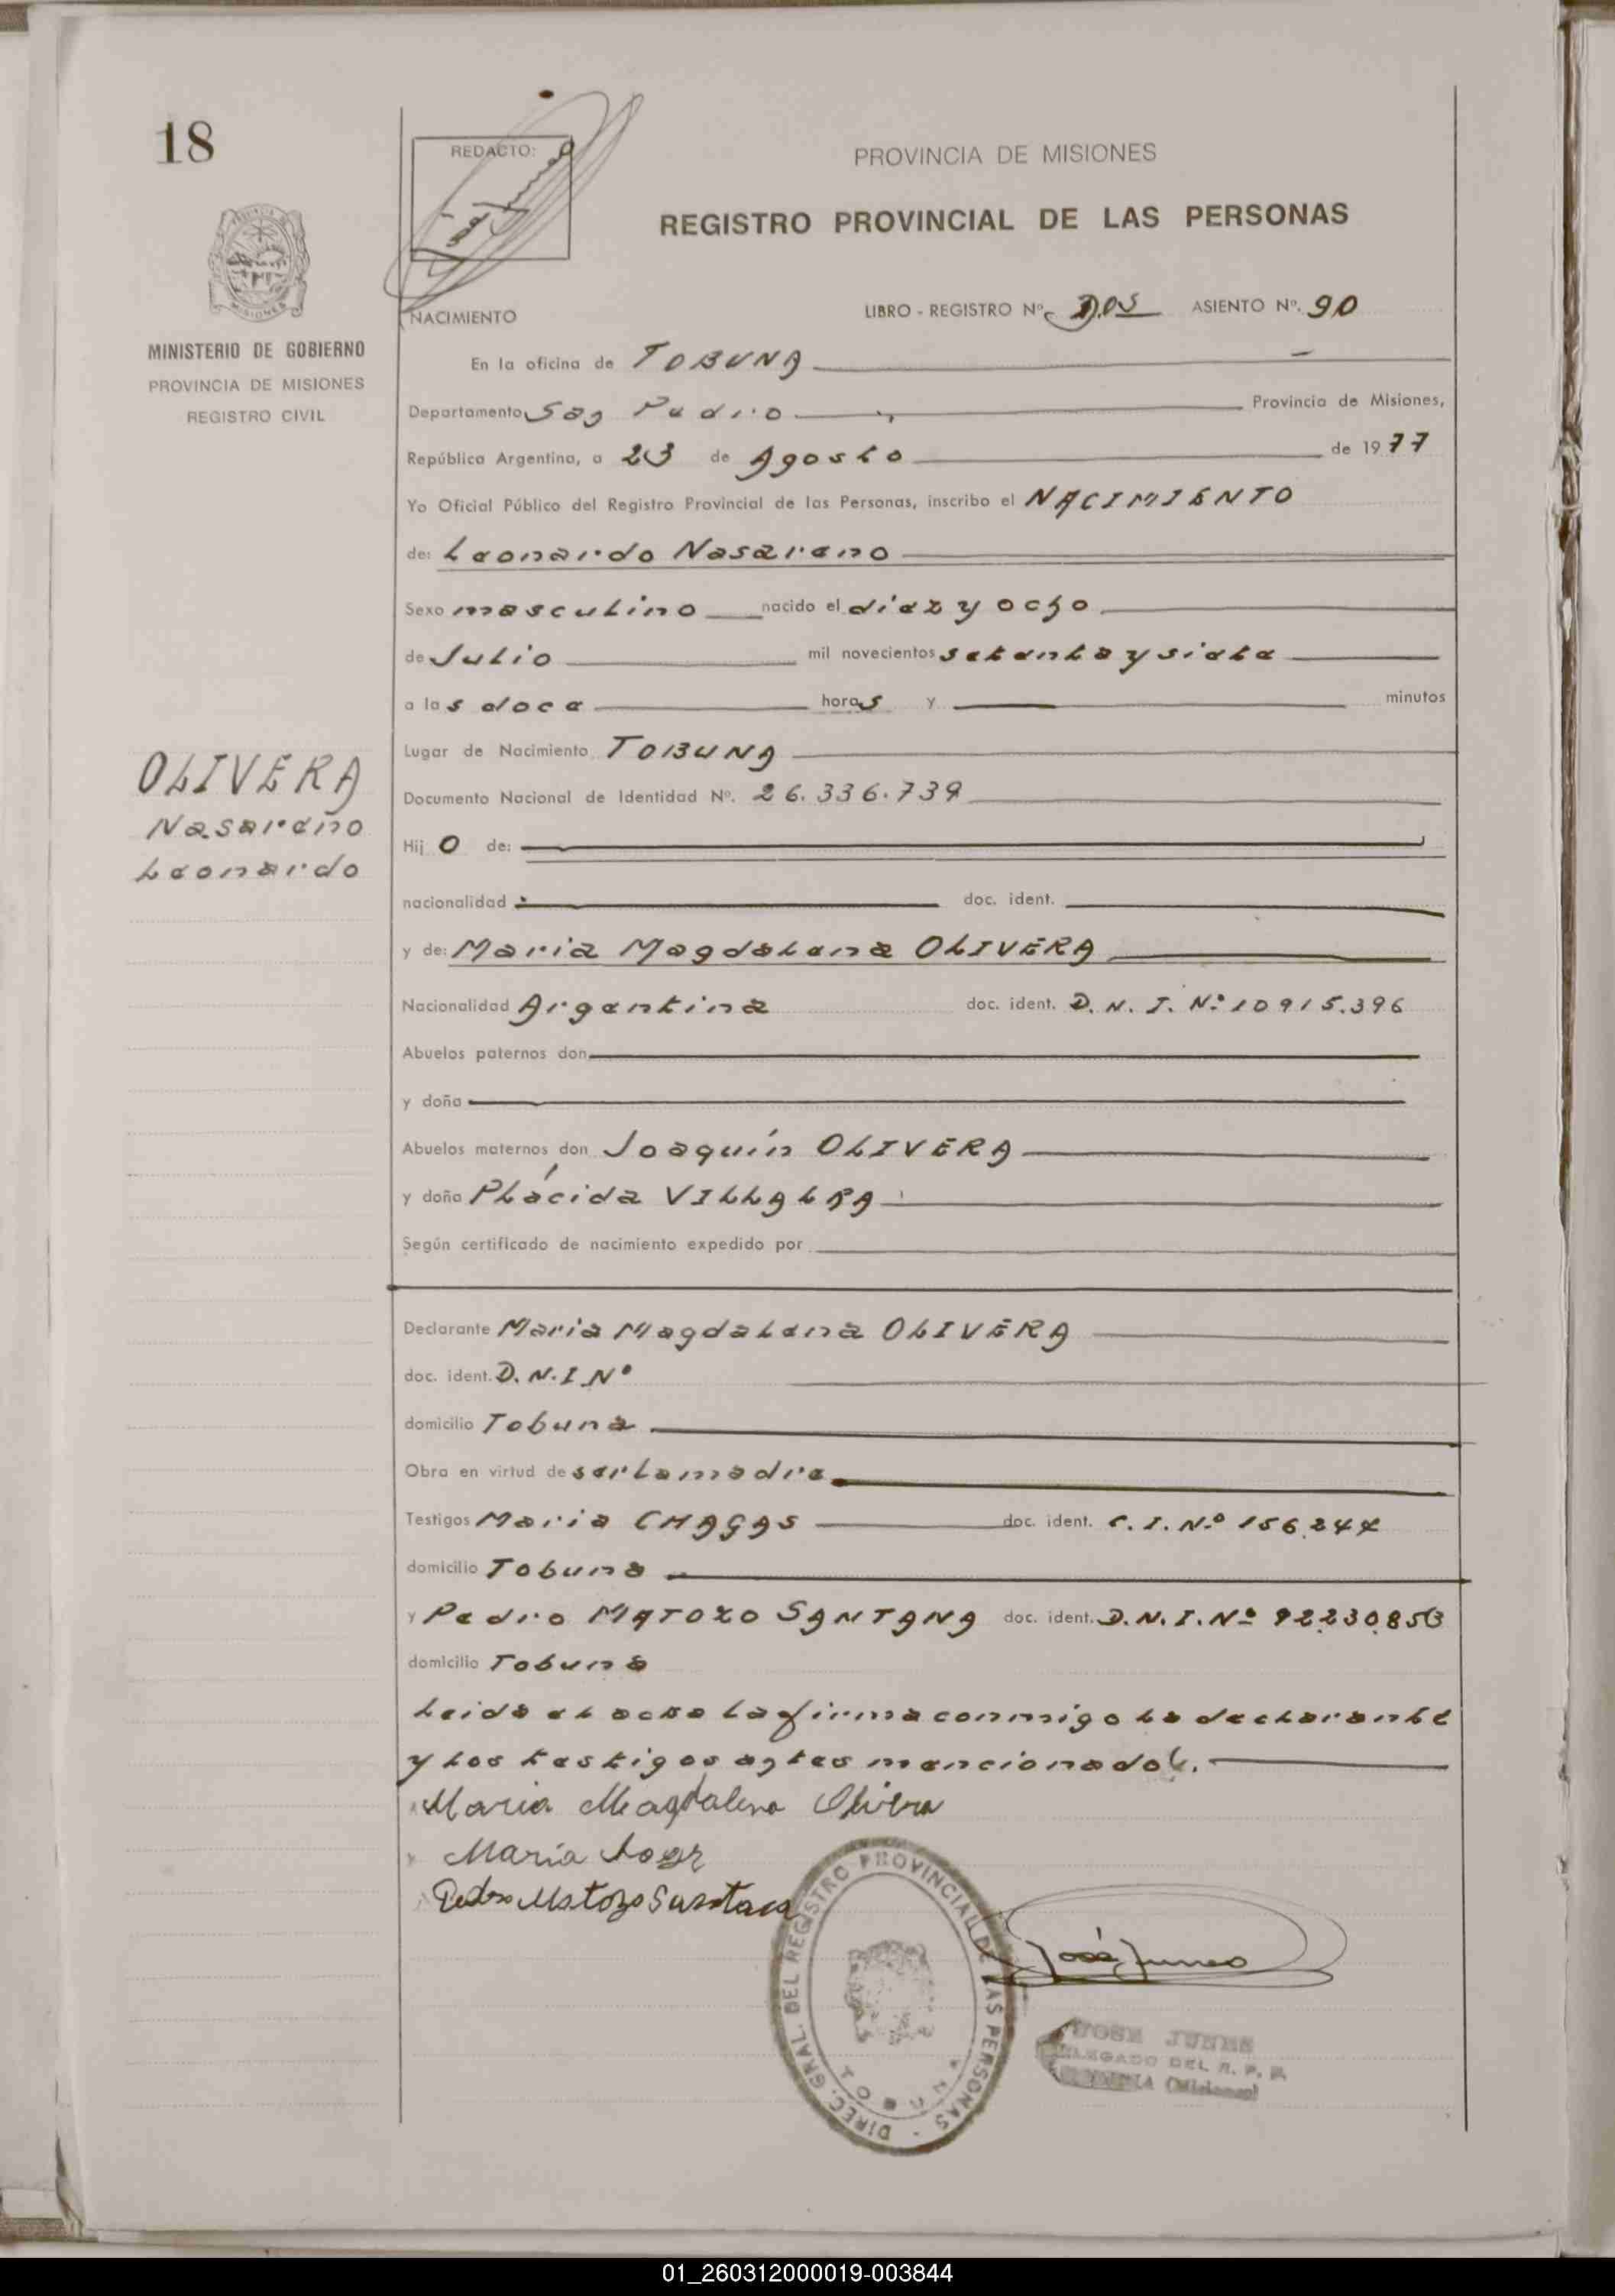 18
REDACTO:
PROVINCIA DE MISIONES
REGISTRO PROVINCIAL DE LAS PERSONAS
MISIONES
MINISTERIO DE GOBIERNO
PROVINCIA DE MISIONES
REGISTRO CIVIL
NACIMIENTO
LIBRO - REGISTRO Nº. DOS ASIENTO Nº. 90
En la oficina de TOBUNA
Departamento San Pedro Provincia de Misiones,
República Argentina, a 23 de Agosto de 1977
Yo Oficial Público del Registro Provincial de las Personas, inscribo el NACIMIENTO
de: Leonardo Nasareno
Sexo masculino nacido el diez y ocho
de Julio mil novecientos setenta y siete
a las doce horas y minutos
Lugar de Nacimiento TOBUNA
OLIVERA
Nasareno
Leonardo
Documento Nacional de Identidad Nº. 26.336.739
Hij o de:
nacionalidad doc. ident.
y de: Maria Magdalena OLIVERA
Nacionalidad Argentina doc. ident. D. N. I. Nº 10915.396
Abuelos paternos don
y doña
Abuelos maternos don Joaquín OLIVERA
y doña Plácida VILLALBA
Según certificado de nacimiento expedido por
Declarante Maria Magdalena OLIVERA
doc. ident. D. N. I Nº
domicilio Tobuna
Obra en virtud de ser la madre
Testigos Maria CHAGAS doc. ident. C. I. Nº 156.244
domicilio Tobuna
y Pedro MATOZO SANTANA doc. ident. D. N. I. Nº 92.230.853
domicilio Tobuna
Leida el acta la firma conmigo la declarante
y los testigos antes mencionados.
Maria Magdalena Olivera
Maria
Pedro Matozo Santana
DIREC. GRAL. DEL REGISTRO PROVINCIAL DE LAS PERSONAS -
TOBUNA
José Junes
JOSE JUNES
DELEGADO DEL R. P. P.
(Misiones)
01_260312000019-003844